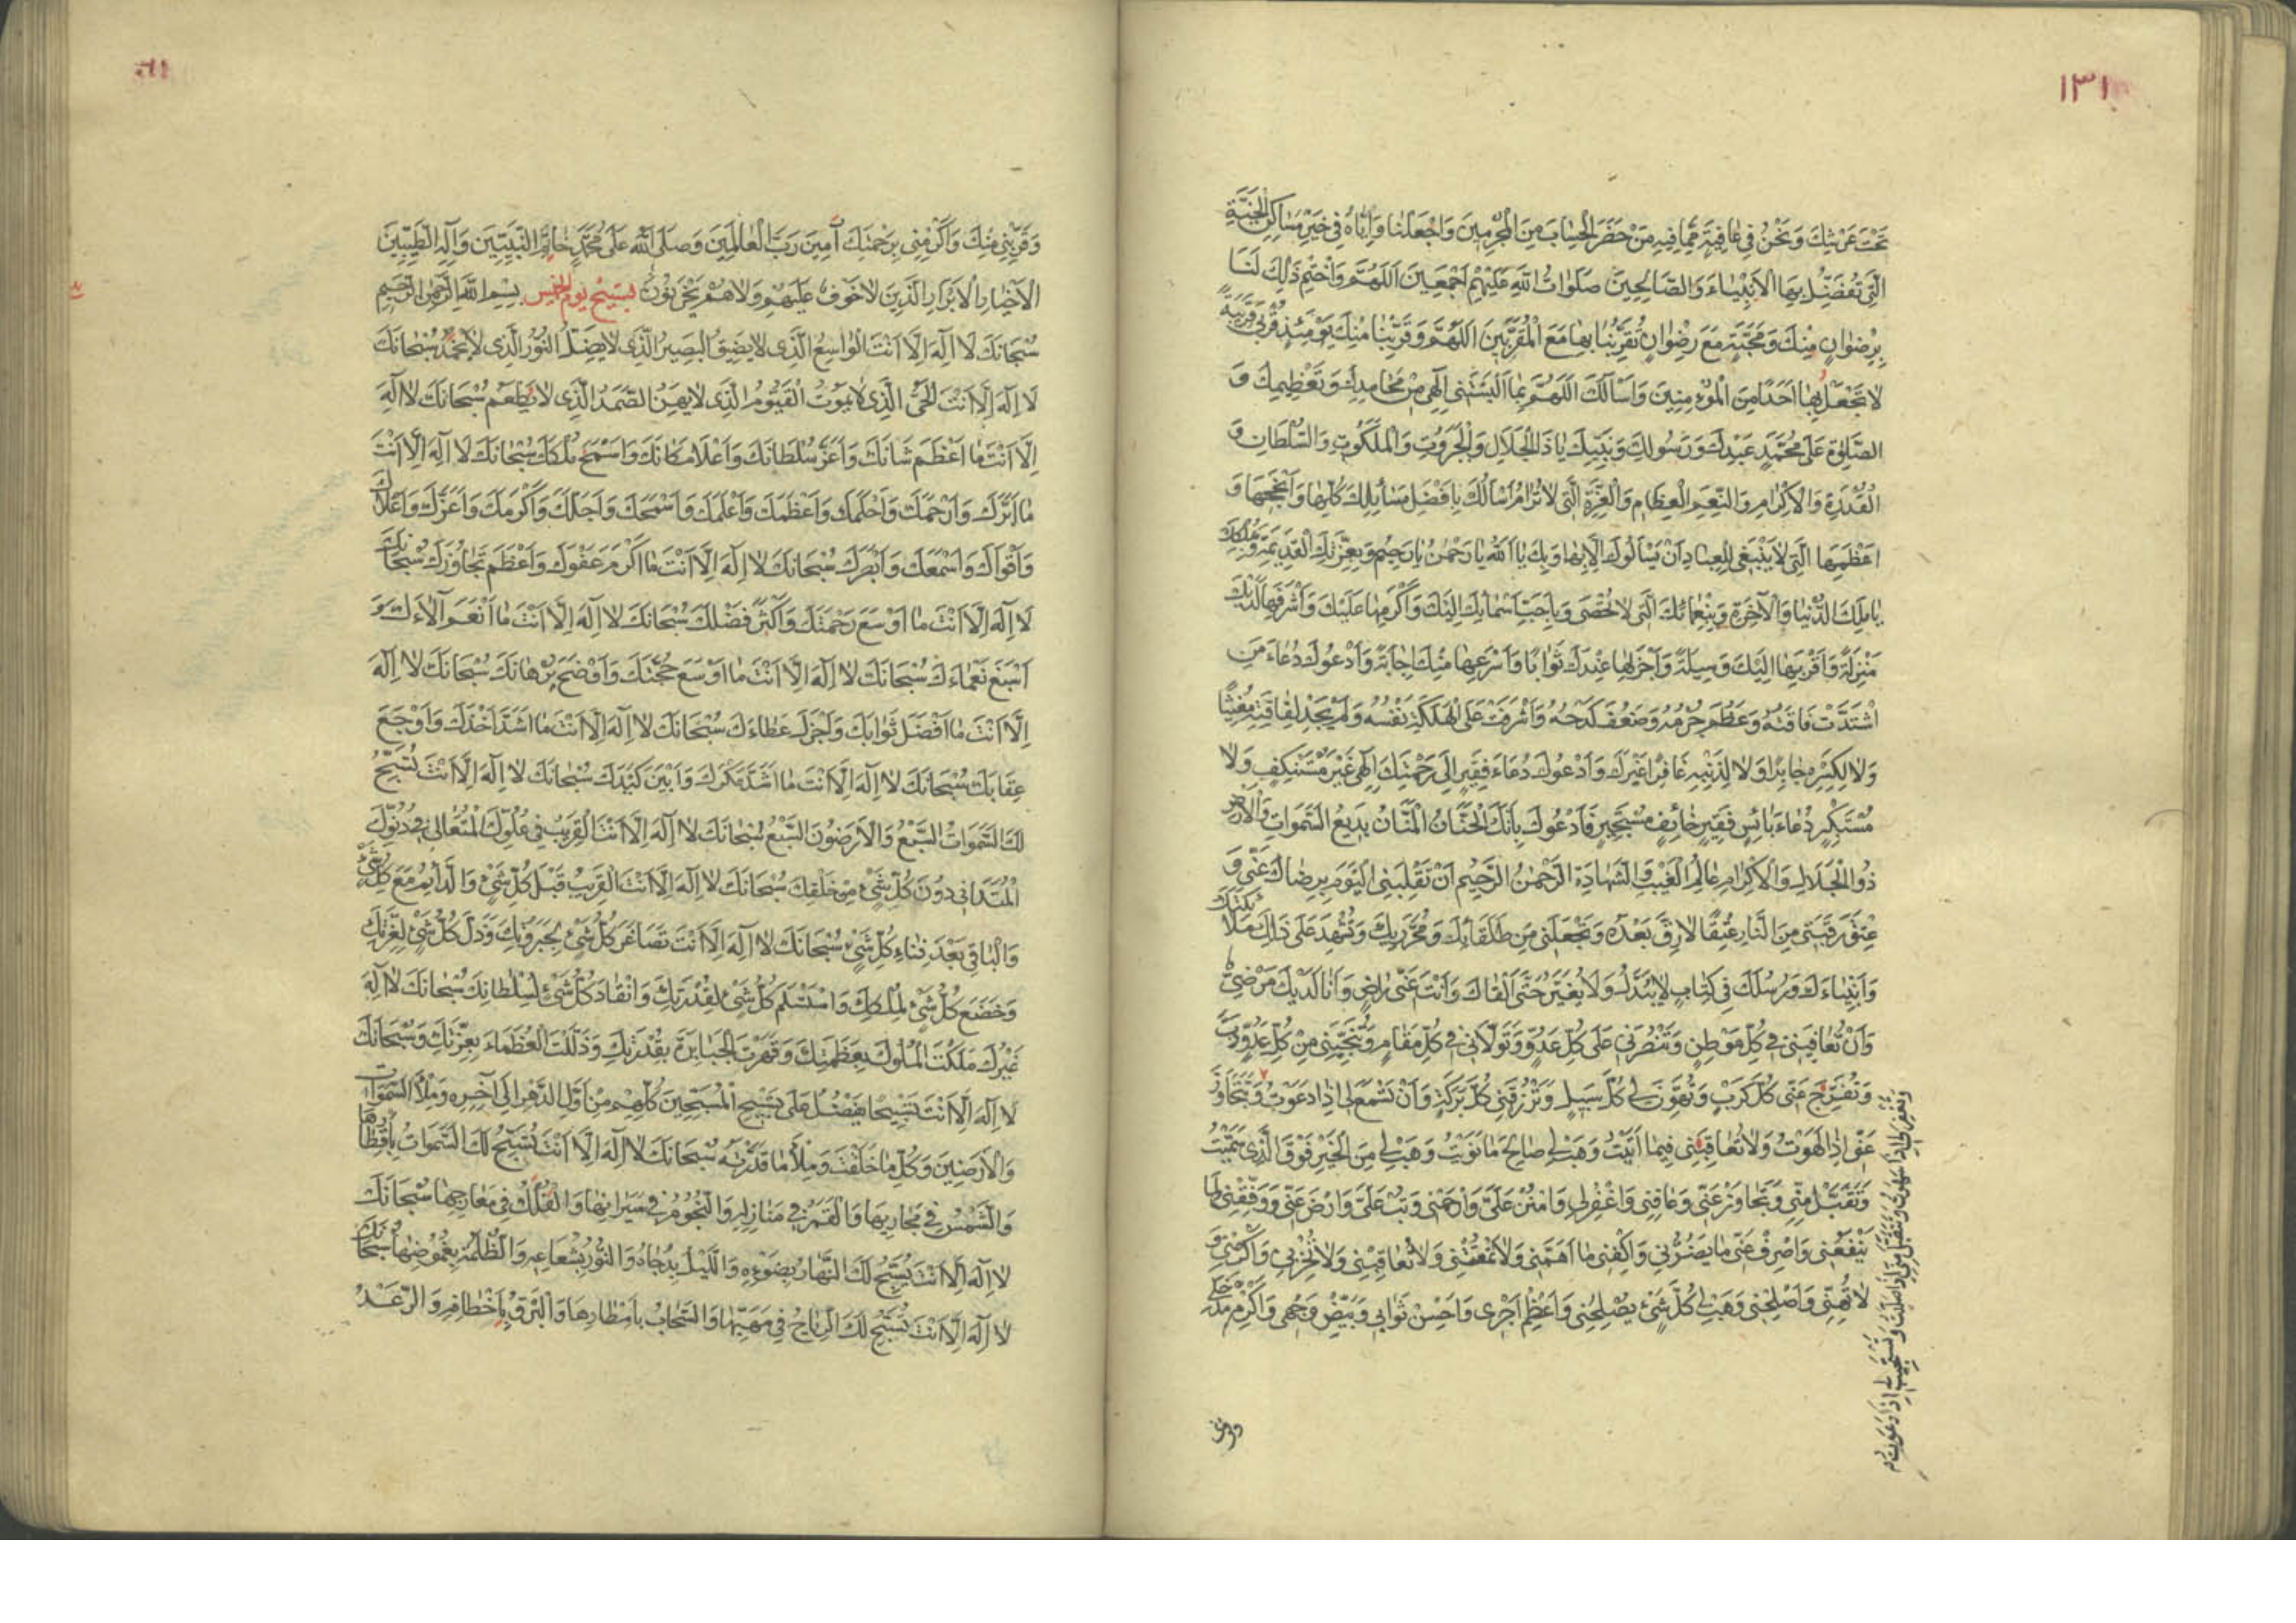 ١٣١
تَحْتَ عَرْشِكَ وَنَحْنُ فِى عَافِيَةٍ مِمَّا فِيهِ مَنْ حَضَرَ الْحِسَابَ مِنَ الْمُجْرِمِينَ وَاجْعَلْنَا وَاِيَّاهُ فِى خَيْرِ مَسَاكِنِ الْجَنَّةِ
الَّتِى تُفَضِّلُ بِهَا الْاَنْبِيَاءَ وَالصَّالِحِينَ صَلَوَاتُ اللهِ عَلَيْهِمْ اَجْمَعِينَ اَللّهُمَّ وَاخْتِمْ ذَلِكَ لَنَا
بِرِضْوَانٍ مِنْكَ وَمَحَبَّةٍ مَعَ رِضْوَانٍ تُقَرِّبُنَا بِهَا مَعَ الْمُقَرَّبِينَ اَللّهُمَّ وَقَرِّبْنَا مِنْكَ يَوْمَئِذٍ قُرْبَى قَرِيبَةً
لَا تَجْعَلُ بِهَا اَحَدًا مِنَ الْمُؤْمِنِينَ وَاَسْاَلُكَ اَللّهُمَّ بِمَا اَلْبَسْتَنِى اِلَهِى مِنْ مَحَامِدِكَ وَتَعْظِيمِكَ وَ
الصَّلوةِ عَلَى مُحَمَّدٍ عَبْدِكَ وَرَسُولِكَ وَنَبِيِّكَ يَا ذَا الْجَلَالِ وَالْجَبَرُوتِ وَالْمَلَكُوتِ وَالسُّلْطَانِ وَ
الْقُدْرَةِ وَالْاِكْرَامِ وَالنِّعَمِ الْعِظَامِ وَالْعِزَّةِ الَّتِى لَا تُرَامُ اَسْاَلُكَ بِاَفْضَلِ مَسَائِلِكَ كُلِّهَا وَاَنْجَحِهَا وَ
اَعْظَمِهَا الَّتِى لَا يَنْبَغِى لِلْعِبَادِ اَنْ يَسْاَلُوكَ اِلَّا بِهَا وَبِكَ يَا اَللهُ يَا رَحْمنُ يَا رَحِيمُ وَبِعِزَّتِكَ الْقَدِيمَةِ وَبِمُلْكِكَ
يَا مَلِكَ الدُّنْيَا وَالْآخِرَةِ وَبِنَعْمَائِكَ الَّتِى لَا تُحْصَى وَبِاَحَبِّ اَسْمَائِكَ اِلَيْكَ وَاَكْرَمِهَا عَلَيْكَ وَاَشْرَفِهَا لَدَيْكَ
مَنْزِلَةً وَاَقْرَبِهَا اِلَيْكَ وَسِيلَةً وَاَجْزَلِهَا عِنْدَكَ ثَوَابًا وَاَسْرَعِهَا مِنْكَ اِجَابَةً وَاَدْعُوكَ دُعَاءَ مَنِ
اشْتَدَّتْ فَاقَتُهُ وَعَظُمَ جُرْمُهُ وَضَعُفَ كَدْحُهُ وَاَشْرَفَتْ عَلَى الْهَلَكَةِ نَفْسُهُ وَلَمْ يَجِدْ لِفَاقَتِهِ مُغِيثًا
وَلَا لِكَسْرِهِ جَابِرًا وَلَا لِذَنْبِهِ غَافِرًا غَيْرَكَ وَاَدْعُوكَ دُعَاءَ فَقِيرٍ اِلَى رَحْمَتِكَ اِلَهِى غَيْرَ مُسْتَنْكِفٍ وَلَا
مُسْتَكْبِرٍ دُعَاءَ بَائِسٍ فَقِيرٍ خَائِفٍ مُسْتَجِيرٍ فَاَدْعُوكَ بِاَنَّكَ الْحَنَّانُ الْمَنَّانُ بَدِيعُ السَّمَوَاتِ وَالْاَرْضِ
ذُوا الْجَلَالِ وَالْاِكْرَامِ عَالِمُ الْغَيْبِ وَالشَّهَادَةِ الرَّحْمنُ الرَّحِيمُ اَنْ تَقْلِبَنِى الْيَوْمَ بِرِضَاكَ عَنِّى وَ
عِتْقِ رَقَبَتِى مِنَ النَّارِ عِتْقًا لَا رِقَّ بَعْدَهُ وَتَجْعَلَنِى مِنْ طُلَقَائِكَ وَمُحَرَّرِيكَ وَتُشْهِدَ عَلَى ذَلِكَ مَلَائِكَتَكَ
وَاَنْبِيَاءَكَ وَرُسُلَكَ فِى كِتَابٍ لَا يُبَدَّلُ وَلَا يُغَيَّرُ حَتَّى اَلْقَاكَ وَاَنْتَ عَنِّى رَاضٍ وَاَنَا لَدَيْكَ مَرْضِىٌّ
وَاَنْ تُعَافِيَنِى فِى كُلِّ مَوْطِنٍ وَتَنْصُرَنِى عَلَى كُلِّ عَدُوٍّ وَتَوَلَّانِى فِى كُلِّ مَقَامٍ وَتُنَجِّيَنِى مِنْ كُلِّ عَدُوٍّ
وَتُفَرِّجَ عَنِّى كُلَّ كَرْبٍ وَتُهَوِّنَ لِى كُلَّ سَبِيلٍ وَتَرْزُقَنِى كُلَّ بَرَكَةٍ وَاَنْ تَسْمَعَ لِى اِذَا دَعَوْتُ وَتَتَجَاوَزَ
عَفْوًا اِذَا لَهَوْتُ وَلَا تُعَاقِبَنِى فِيمَا اَتَيْتُ وَهَبْ لِى صَالِحَ مَا نَوَيْتُ وَهَبْ لِى مِنَ الْخَيْرِ فَوْقَ الَّذِى سَمَّيْتُ
وَتَقَبَّلْ مِنِّى وَتَجَاوَزْ عَنِّى وَعَافِنِى وَاغْفِرْ لِى وَامْنُنْ عَلَىَّ وَارْحَمْنِى وَتُبْ عَلَىَّ وَارْضَ عَنِّى وَوَفِّقْنِى لِمَا
يَنْفَعُنِى وَاصْرِفْ عَنِّى مَا يَضُرُّنِى وَاكْفِنِى مَا اَهَمَّنِى وَلَا تَمْقُتْنِى وَلَا تُعَاقِبْنِى وَلَا تُخْزِنِى وَاَكْرِمْنِى وَ
لَا تُهِنِّى وَاَصْلِحْنِى وَهَبْ لِى كُلَّ شَىْءٍ يُصْلِحُنِى وَاَعْظِمْ اَجْرِى وَاَحْسِنْ ثَوَابِى وَبَيِّضْ وَجْهِى وَاَكْرِمْ مَدْخَلِى
وَتَغْفِرَ لِى اِذَا سَهَوْتُ وَتَتَقَبَّلَ مِنِّى اِذَا صَلَّيْتُ وَتَسْتَجِيبَ لِى اِذَا دَعَوْتُ
وقربنى
وَقَرِّبْنِى مِنْكَ وَاَكْرِمْنِى بِرَحْمَتِكَ آمِينَ رَبَّ الْعَالَمِينَ وَصَلَّى اللهُ عَلَى مُحَمَّدٍ خَاتَمِ النَّبِيِّينَ وَآلِهِ الطَّيِّبِينَ
الْاَخْيَارِ الْاَبْرَارِ الَّذِينَ لَا خَوْفٌ عَلَيْهِمْ وَلَا هُمْ يَحْزَنُونَ تسبيح يوم الخميس بِسْمِ اللهِ الرَّحْمنِ الرَّحِيمِ
سُبْحَانَكَ لَا اِلَهَ اِلَّا اَنْتَ الْوَاسِعُ الَّذِى لَا يَضِيقُ الْبَصِيرُ الَّذِى لَا يَضِلُّ النُّورُ الَّذِى لَا يَخْمُدُ سُبْحَانَكَ
لَا اِلَهَ اِلَّا اَنْتَ الْحَىُّ الَّذِى لَا يَمُوتُ الْقَيُّومُ الَّذِى لَا يَهِنُ الصَّمَدُ الَّذِى لَا يَطْعَمُ سُبْحَانَكَ لَا اِلَهَ
اِلَّا اَنْتَ مَا اَعْظَمَ شَانَكَ وَاَعَزَّ سُلْطَانَكَ وَاَعْلَا مَكَانَكَ وَاَشْمَخَ مُلْكَكَ سُبْحَانَكَ لَا اِلَهَ اِلَّا اَنْتَ
مَا اَبَرَّكَ وَاَرْحَمَكَ وَاَحْلَمَكَ وَاَعْظَمَكَ وَاَعْلَمَكَ وَاَسْمَحَكَ وَاَجَلَّكَ وَاَكْرَمَكَ وَاَعَزَّكَ وَاَعْلَاكَ
وَاَقْوَاكَ وَاَسْمَعَكَ وَاَبْصَرَكَ سُبْحَانَكَ لَا اِلَهَ اِلَّا اَنْتَ مَا اَكْرَمَ عَفْوَكَ وَاَعْظَمَ تَجَاوُزَكَ سُبْحَانَكَ
لَا اِلَهَ اِلَّا اَنْتَ مَا اَوْسَعَ رَحْمَتَكَ وَاَكْثَرَ فَضْلَكَ سُبْحَانَكَ لَا اِلَهَ اِلَّا اَنْتَ مَا اَنْعَمَ آلَاءَكَ وَ
اَسْبَغَ نَعْمَاءَكَ سُبْحَانَكَ لَا اِلَهَ اِلَّا اَنْتَ مَا اَوْسَعَ حُجَّتَكَ وَاَوْضَحَ بُرْهَانَكَ سُبْحَانَكَ لَا اِلَهَ
اِلَّا اَنْتَ مَا اَفْضَلَ ثَوَابَكَ وَاَجْزَلَ عَطَاءَكَ سُبْحَانَكَ لَا اِلَهَ اِلَّا اَنْتَ مَا اَشَدَّ اَخْذَكَ وَاَوْجَعَ
عِقَابَكَ سُبْحَانَكَ لَا اِلَهَ اِلَّا اَنْتَ مَا اَشَدَّ مَكْرَكَ وَاَبْيَنَ كَيْدَكَ سُبْحَانَكَ لَا اِلَهَ اِلَّا اَنْتَ تُسَبِّحُ
لَكَ السَّمَوَاتُ السَّبْعُ وَالْاَرَضُونَ السَّبْعُ سُبْحَانَكَ لَا اِلَهَ اِلَّا اَنْتَ الْقَرِيبُ فِى عُلُوِّكَ الْمُتَعَالِى فِى دُنُوِّكَ
الْمُتَدَانِى دُونَ كُلِّ شَىْءٍ مِنْ خَلْقِكَ سُبْحَانَكَ لَا اِلَهَ اِلَّا اَنْتَ الْقَرِيبُ قَبْلَ كُلِّ شَىْءٍ وَالدَّائِمُ مَعَ كُلِّ شَىْءٍ
وَالْبَاقِى بَعْدَ فَنَاءِ كُلِّ شَىْءٍ سُبْحَانَكَ لَا اِلَهَ اِلَّا اَنْتَ تَصَاغَرَ كُلُّ شَىْءٍ لِجَبَرُوتِكَ وَذَلَّ كُلُّ شَىْءٍ لِعِزَّتِكَ
وَخَضَعَ كُلُّ شَىْءٍ لِمُلْكِكَ وَاسْتَسْلَمَ كُلُّ شَىْءٍ لِقُدْرَتِكَ وَانْقَادَ كُلُّ شَىْءٍ لِسُلْطَانِكَ سُبْحَانَكَ لَا اِلَهَ
غَيْرُكَ مَلَكْتَ الْمُلُوكَ بِعَظَمَتِكَ وَقَهَرْتَ الْجَبَابِرَةَ بِقُدْرَتِكَ وَذَلَّلْتَ الْعُظَمَاءَ بِعِزَّتِكَ وَسُبْحَانَكَ
لَا اِلَهَ اِلَّا اَنْتَ تَسْبِيحًا يَفْضُلُ عَلَى تَسْبِيحِ الْمُسَبِّحِينَ كُلِّهِمْ مِنْ اَوَّلِ الدَّهْرِ اِلَى آخِرِهِ وَمِلْاَ السَّمَوَاتِ
وَالْاَرَضِينَ وَكُلِّ مَا خَلَقْتَ وَمِلْاَ مَا قَدَّرْتَهُ سُبْحَانَكَ لَا اِلَهَ اِلَّا اَنْتَ تُسَبِّحُ لَكَ السَّمَوَاتُ بِاَقْطَارِهَا
وَالشَّمْسُ فِى مَجَارِيهَا وَالْقَمَرُ فِى مَنَازِلِهِ وَالنُّجُومُ فِى سَيَرَانِهَا وَالْفُلْكُ فِى مَعَارِجِهَا سُبْحَانَكَ
لَا اِلَهَ اِلَّا اَنْتَ يُسَبِّحُ لَكَ النَّهَارُ بِضَوْئِهِ وَاللَّيْلُ بِدُجَاهُ وَالنُّورُ بِشُعَاعِهِ وَالظُّلْمَةُ بِغُمُوضِهَا سُبْحَانَكَ
لَا اِلَهَ اِلَّا اَنْتَ تُسَبِّحُ لَكَ الرِّيَاحُ فِى مَهَبِّهَا وَالسَّحَابُ بِاَمْطَارِهَا وَالْبَرْقُ بِاَخْطَافِهِ وَالرَّعْدُ